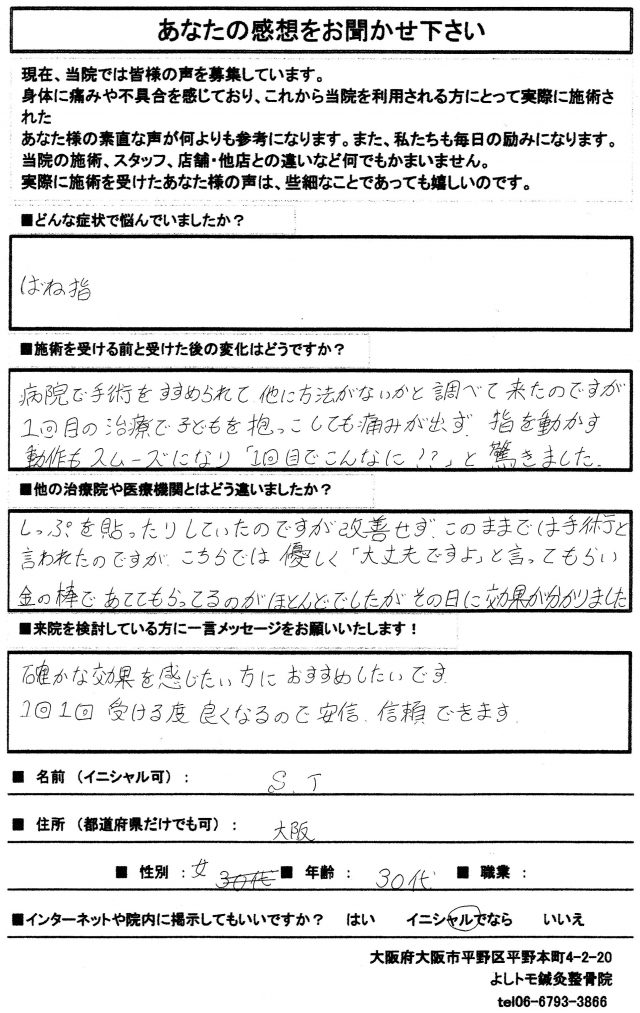 あなたの感想をお聞かせ下さい
現在、当院では皆様の声を募集しています。
身体に痛みや不具合を感じており、これから当院を利用される方にとって実際に施術さ
れた
あなた様の素直な声が何よりも参考になります。また、私たちも毎日の励みになります。
当院の施術、スタッフ、店舗・他店との違いなど何でもかまいません。
実際に施術を受けたあなた様の声は、些細なことであっても嬉しいのです。
■どんな症状で悩んでいましたか？
ばね指
■施術を受ける前と受けた後の変化はどうですか？
病院で手術をすすめられて 他に方法がないかと 調べて 来たのですが
1回目の治療で子どもを抱っこしても痛みが出ず 指を動かす
動作も スムーズになり「1回目でこんなに??」と 驚きました.
■他の治療院や医療機関とはどう違いましたか？
しっぷを貼ったりしていたのですが改善せず このままでは手術と
言われたのですが こちらでは 優しく「大丈夫ですよ」と言ってもらい
金の棒で あててもらってるのがほとんどでしたが その日に 効果が分かりました
■来院を検討している方に一言メッセージをお願いいたします！
確かな効果を感じたい方に おすすめしたいです
1回1回 受ける度 良くなるので安信. 信頼できます.
■ 名前（イニシャル可）： S.T
■ 住所（都道府県だけでも可）： 大阪
■ 性別：女 30代 ■ 年齢： 30代 ■ 職業：
■インターネットや院内に掲示してもいいですか？ はい イニシャルでなら いいえ
大阪府大阪市平野区平野本町4-2-20
よしトモ鍼灸整骨院
tel06-6793-3866